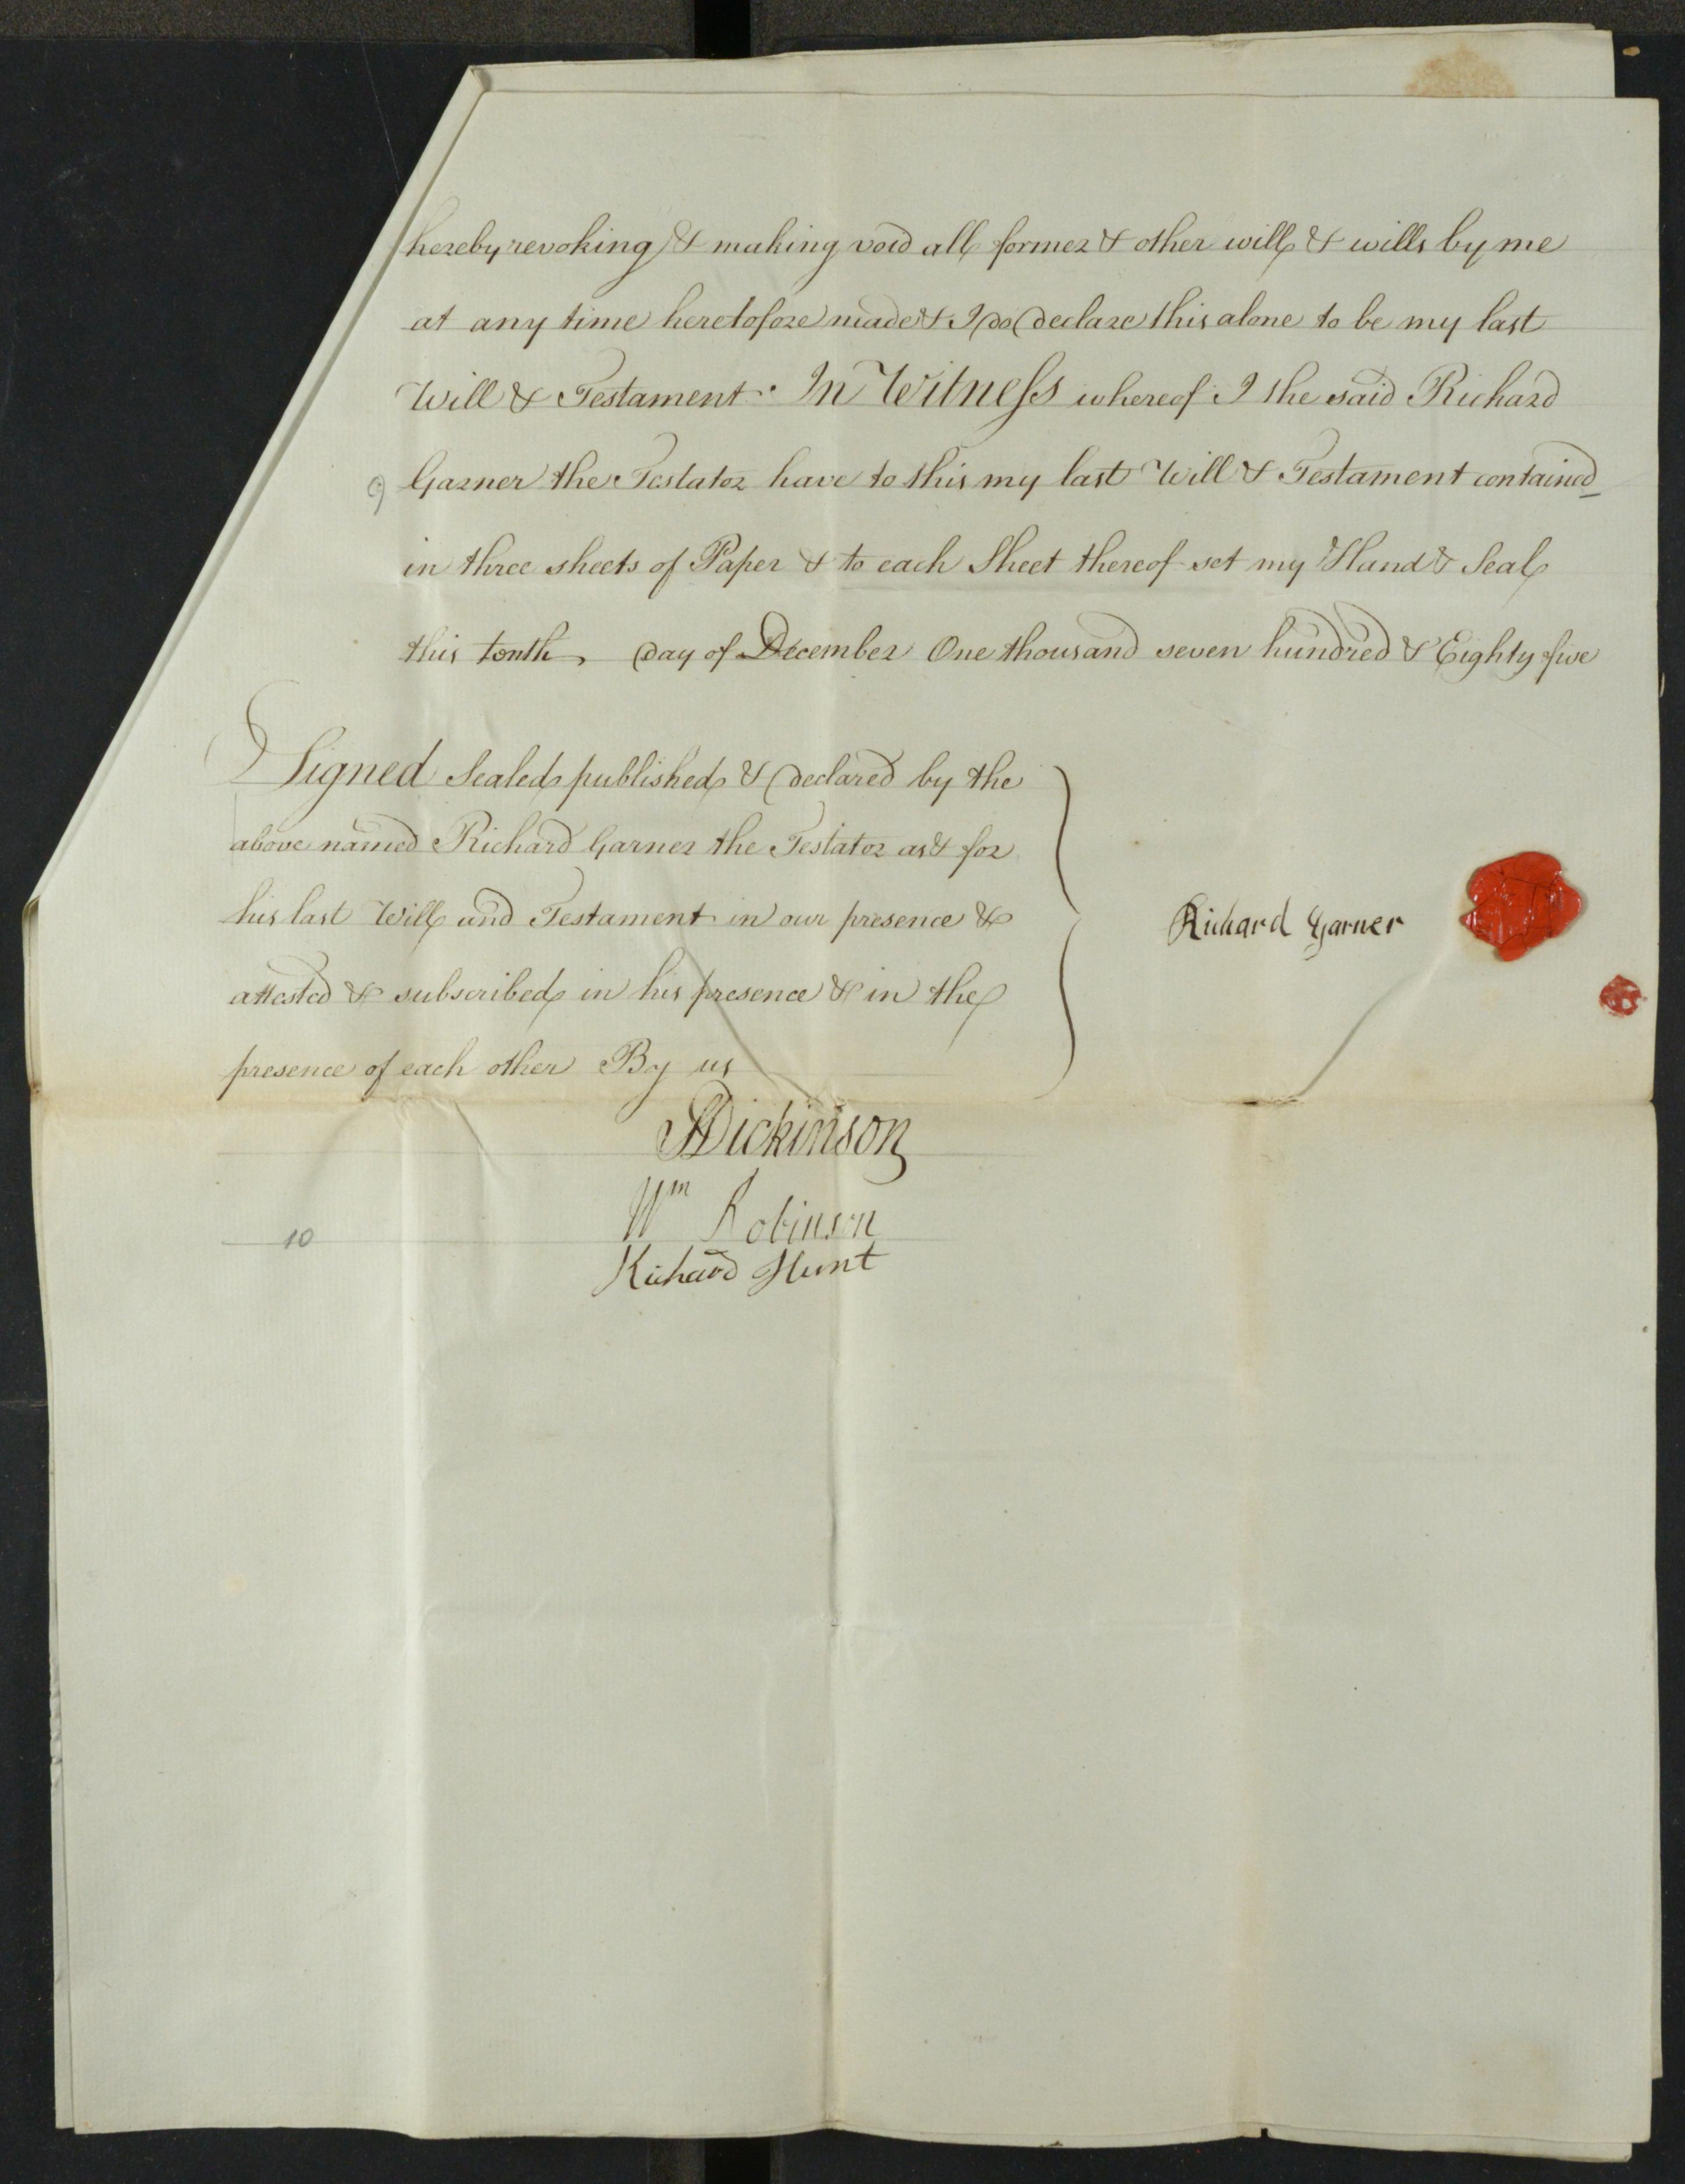 hereby revoking & making void all former & other will & wills by me
at any time heretofore made & I do declare this alone to be my last
Will & Testament. In Witness whereof I the said Richard
9 Garner the Testator have to this my last Will & Testament contained
in three sheets of Paper & to each Sheet thereof set my Hand & Seal
this tenth day of December One thousand seven hundred & Eighty five
Signed Sealed published & declared by the
above named Richard Garner the Testator as & for
his last Will and Testament in our presence &
attested & subscribed in his presence & in the
presence of each other By us
Richard Garner
Dickinson
Wm Robinson
10
Richard Hunt